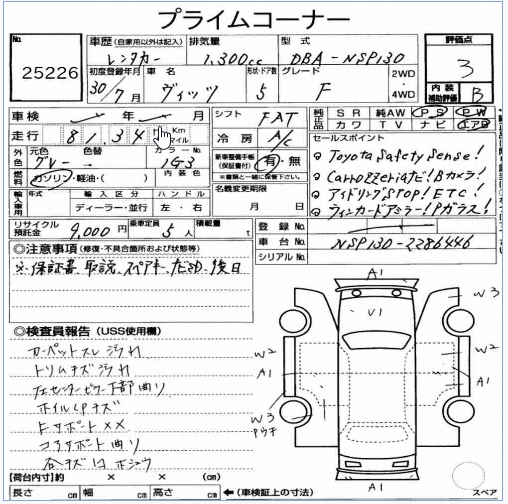 プライムコーナー
No.
25226
車歴 (自家用以外は記入)
レンタカー
排気量
1,300cc
型式
DBA-NSP130
評価点
3
初度登録年月
30/7月
車名
ヴィッツ
形状・ドア数
5
グレード
F
2WD
4WD
内装
補助評価
B
車検 年 月
シフト
FAT
純正品
SR 純AW PS PW
カワ TV ナビ エアB
走行
81,34
Km
マイル
冷房
A/C
セールスポイント
外色
元色
グレー
色替
カラーNo.
1G3
Toyota Safety Sense!
燃料
ガソリン・軽油・( )
内装色
新車整備手帳
(保証書付)
有・無
※車検証と一緒に保管して下さい。
Carrozzeriaナビ!Bカメラ!
輸入車用
年式
輸入区分
ディーラー・並行
ハンドル
左・右
名義変更期限
月 日
アイドリングSTOP!ETC!
ウィンカードアミラー!Pガラス!
リサイクル
預託金
9,000円
乗車定員
5人
積載量
t
登録No.
車台No.
NSP130-2286446
シリアルNo.
◎注意事項 (修復・不具合箇所および状態等)
※保証書、取説、スペアキー、ナビSD、後日
◎検査員報告 (USS使用欄)
カーペットスレ汚れ
トリムキズ汚れ
左センターピラー下部曲り
ホイルCPキズ
ドサポートXX
コアサポート曲り
【荷台内寸】約 × × (cm)
長さ cm 幅 cm 高さ cm
←(車検証上の寸法)
A1
V1
W3
W2
W2
A1
A1
W3
Pウチ
A1
スペア